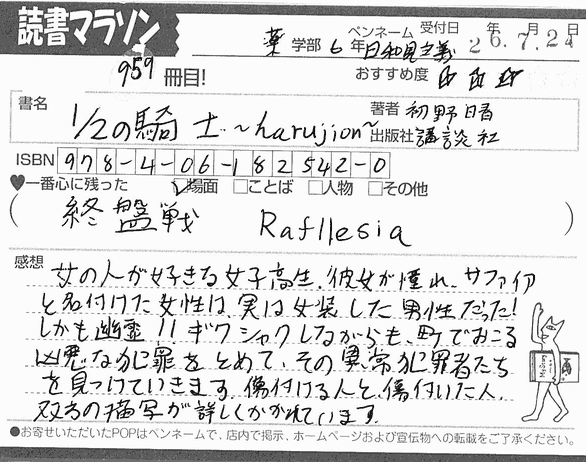 読書マラソン
959冊目!
薬 学部 6年 ペンネーム 日和見主義 受付日 26年7月24日
おすすめ度 ☆☆☆
書名 1/2の騎士 ~harujion~
著者 初野晴
出版社 講談社
ISBN 978-4-06-182542-0
♥一番心に残った ☑場面 □ことば □人物 □その他
(終盤戦 Rafllesia)
感想
女の人が好きな女子高生。彼女が憧れ、サファイア
と名付けた女性は、実は女装した男性だった!
しかも幽霊!! ギクシャクしながらも、町でおこる
凶悪な犯罪をとめて、その異常犯罪者たち
を見つけていきます。傷付ける人と、傷付いた人、
双方の描写が詳しくかかれています。
●お寄せいただいたPOPはペンネームで、店内で掲示、ホームページおよび宣伝物への転載をご了承ください。